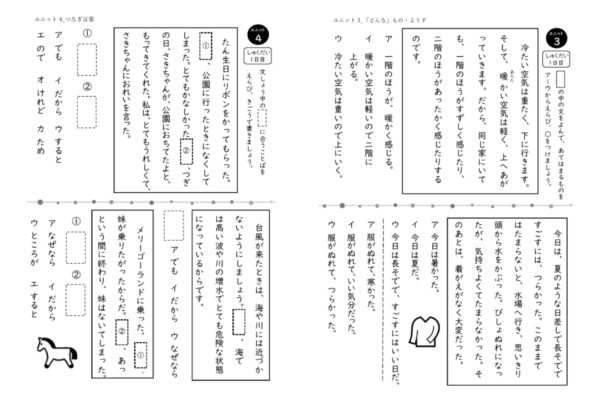 ユニット3_「どんな」もの・ようす
ユニット
3
しゅくだい
1日目
の中の文をよんで、あてはまるものを
ア～ウからえらび、〇をつけましょう。
冷たい空気は重たく、下に行きます。
そして、暖かい空気は軽く、上へあが
あたた
っていきます。だから、同じ家にいて
も、一階のほうがすずしく感じたり、
二階のほうがあったかく感じたりする
のです。
ア 一階のほうが、暖かく感じる。
イ 暖かい空気は軽いので二階に
上がる。
ウ 冷たい空気は重いので上にいく。
今日は、夏のような日差しで長そでで
すごすには、つらかった。このままで
はたまらないと、水場へ行き、思いきり
頭から水をかぶった。びしょぬれになっ
たが、気持ちよくてたまらなかった。そ
のあとは、着がえがなく大変だった。
ア 今日は暑かった。
イ 今日は夏だ。
ウ 今日は長そでで、すごすにはいい日だ。
ア 服がぬれて、寒かった。
イ 服がぬれて、いい気分だった。
ウ 服がぬれて、つらかった。
ユニット4_つなぎ言葉
ユニット
4
しゅくだい
1日目
文しょう中の に合うことばを
えらび、きごうで書きましょう。
たん生日にリボンをかってもらった。
① 、公園に行ったときになくして
しまった。とてもかなしかった ② 、つぎ
の日、さきちゃんが、公園におちてたよと、
もってきてくれた。私は、とてもうれしくて、
さきちゃんにおれいを言った。
① ②
ア でも イ だから ウ すると
エ ので オ けれど カ ため
台風が来たときは、海や川には近づか
ないようにしましょう。 、海で
は高い波や川の増水でとても危険な状態
になっているからです。
ア でも イ だから ウ なぜなら
メリーゴーランドに乗った。 ① 、
妹が乗りたがったからだ。 ② 、あっ
という間に終わり、妹はないてしまった。
① ②
ア なぜなら イ だから
ウ ところが エ すると